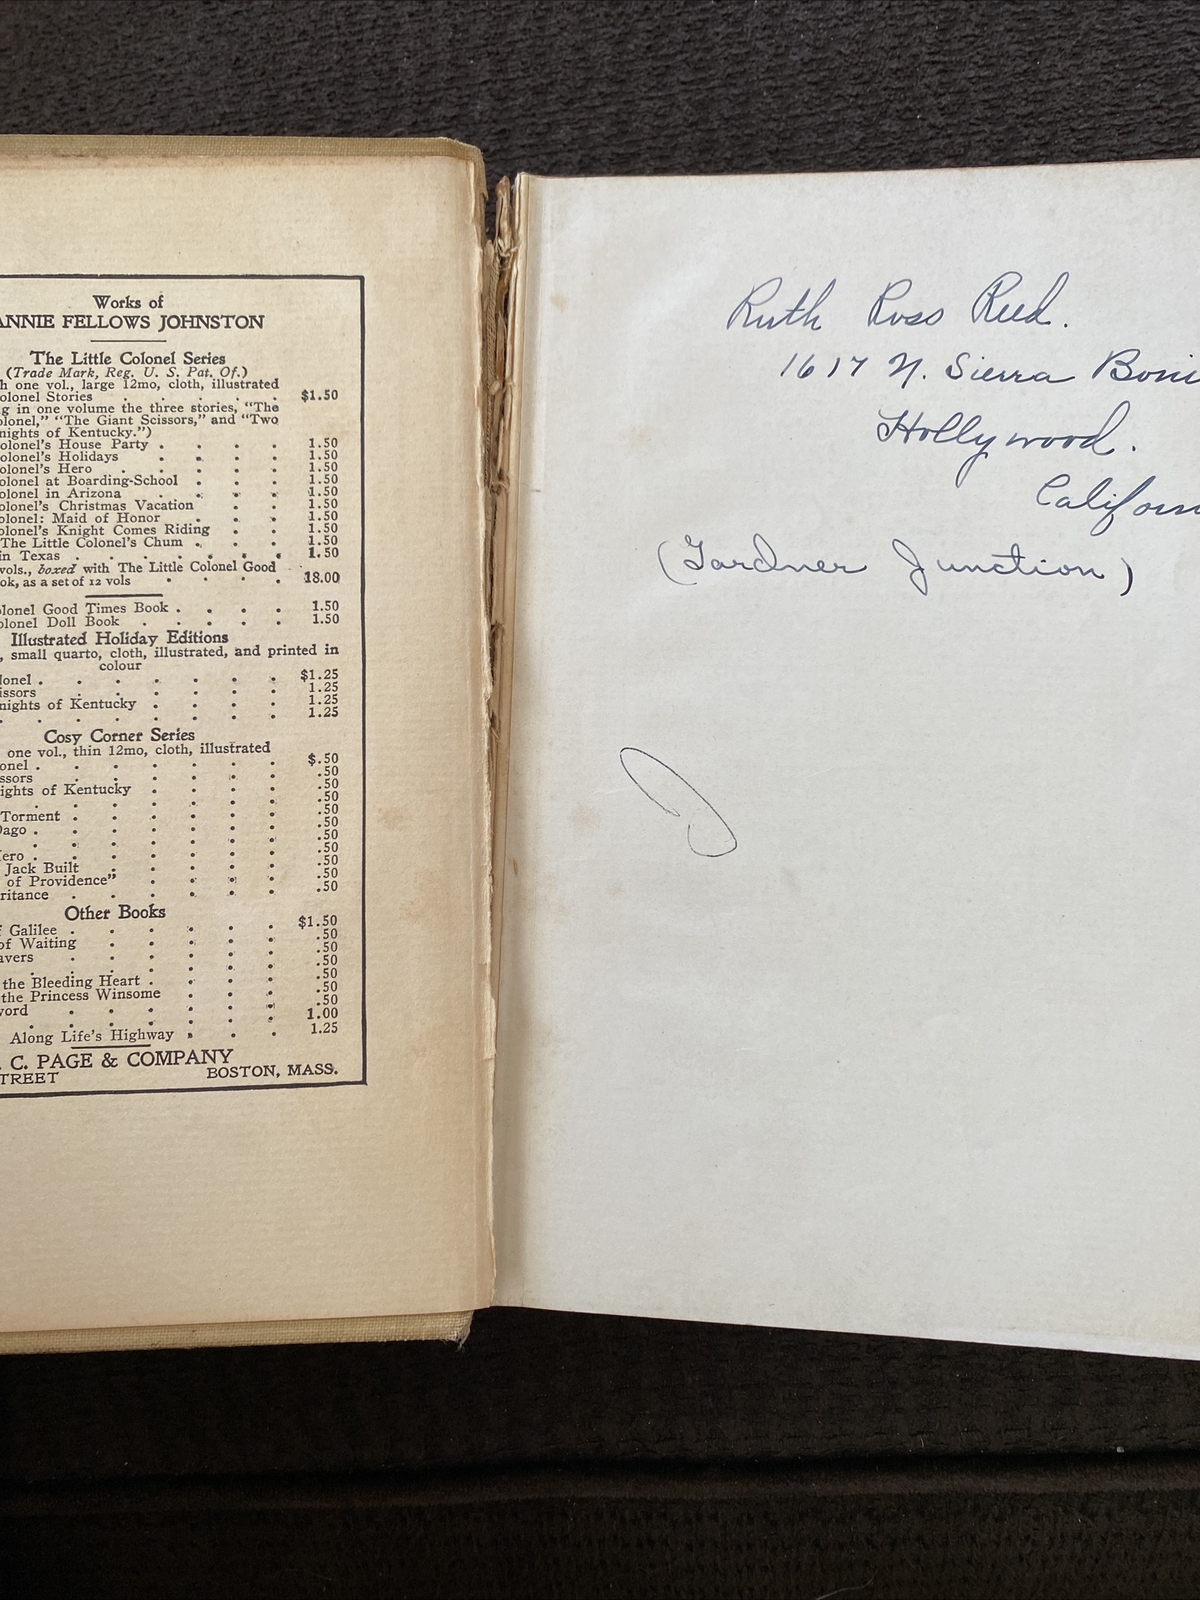 Works of
ANNIE FELLOWS JOHNSTON
The Little Colonel Series
(Trade Mark, Reg. U. S. Pat. Of.)
h one vol., large 12mo, cloth, illustrated
olonel Stories . . . . . $1.50
g in one volume the three stories, "The
olonel," "The Giant Scissors," and "Two
nights of Kentucky.")
olonel's House Party . . . . 1.50
olonel's Holidays . . . . 1.50
olonel's Hero . . . . 1.50
olonel at Boarding-School . . . 1.50
olonel in Arizona . . . 1.50
olonel's Christmas Vacation . . 1.50
olonel: Maid of Honor . . . 1.50
olonel's Knight Comes Riding . . 1.50
The Little Colonel's Chum . . . 1.50
in Texas . . . . . . . 1.50
vols., boxed with The Little Colonel Good
ok, as a set of 12 vols . . . . 18.00
olonel Good Times Book . . . . 1.50
olonel Doll Book . . . . 1.50
Illustrated Holiday Editions
, small quarto, cloth, illustrated, and printed in
colour
lonel . . . . . . . $1.25
issors . . . . . . 1.25
nights of Kentucky . . . . 1.25
. . . . . . . 1.25
Cosy Corner Series
one vol., thin 12mo, cloth, illustrated
onel . . . . . . . $.50
ssors . . . . . . .50
ights of Kentucky . . . . .50
. . . . . . .50
Torment . . . . . .50
Dago . . . . . . .50
. . . . . . .50
ero . . . . . . .50
Jack Built . . . . .50
of Providence" . . . . .50
ritance . . . . . .50
Other Books
f Galilee . . . . . . $1.50
of Waiting . . . . . .50
avers . . . . . .50
. . . . . . .50
the Bleeding Heart . . . . .50
the Princess Winsome . . . .50
word . . . . . . 1.00
Along Life's Highway . . . 1.25
. C. PAGE & COMPANY
TREET BOSTON, MASS.
Ruth Ross Reed.
1617 N. Sierra Boni
Hollywood.
Californ
(Gardner Junction)